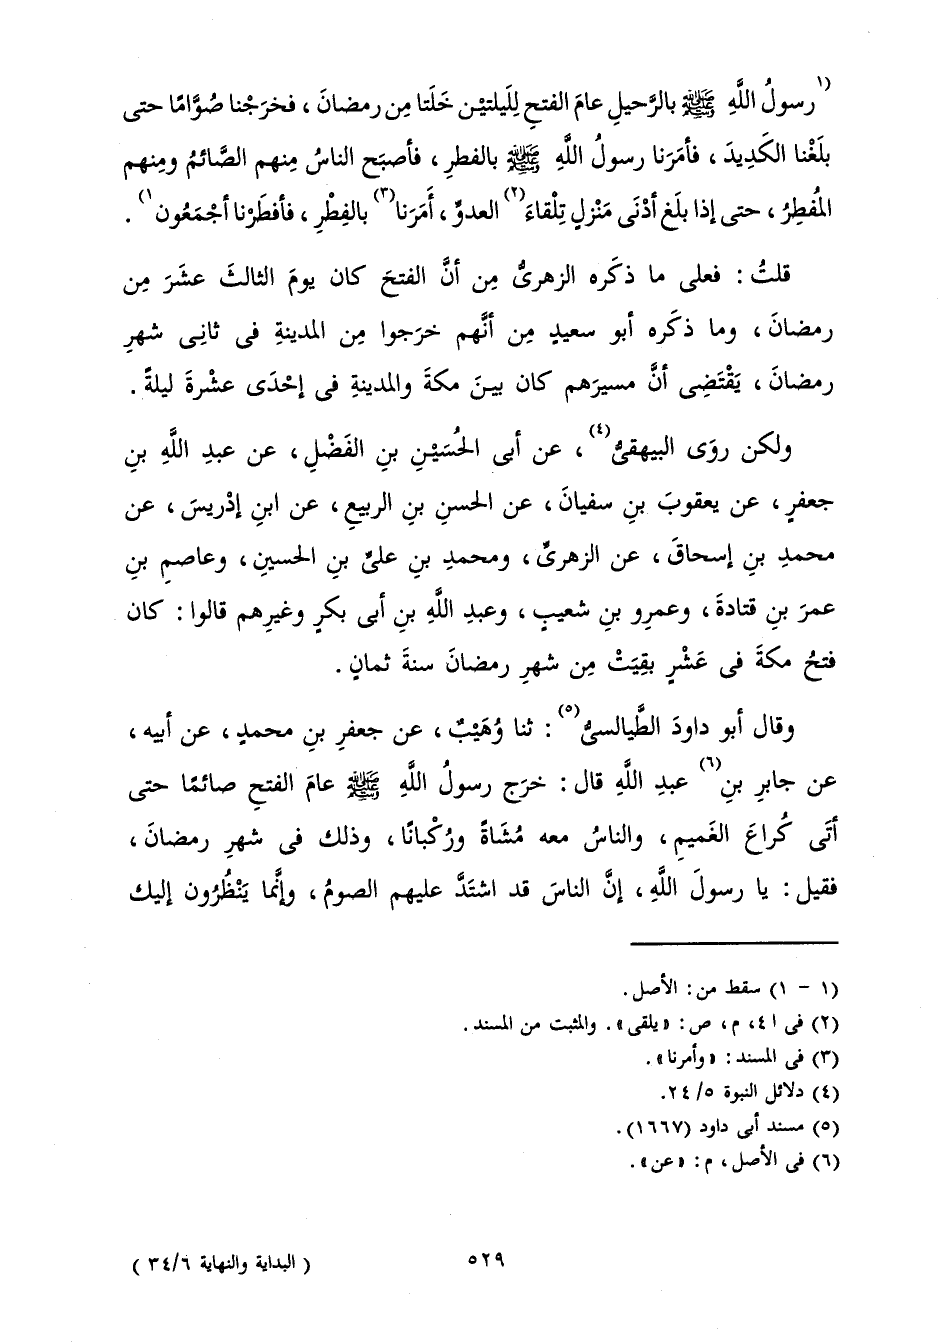 (١رسولُ اللَّهِ ﷺ بالرَّحيلِ عامَ الفتحِ لِلَيلتيْن خَلَتا مِن رمضانَ، فخرَجْنا صُوَّامًا حتى
بلَغْنا الكَدِيدَ، فأمَرَنا رسولُ اللَّهِ ﷺ بالفطرِ، فأصبَح الناسُ مِنهم الصَّائمُ ومِنهم
المُفطِرُ، حتى إذا بلَغ أدْنَى مَنْزِلٍ تِلْقاءَ(٢) العدوِّ، أَمَرَنا(٣) بالفِطْرِ، فأفطَرْنا أجْمَعُون١).
قلتُ: فعلى ما ذكَره الزهرىُّ مِن أنَّ الفتحَ كان يومَ الثالثَ عشَرَ مِن
رمضانَ، وما ذكَره أبو سعيدٍ مِن أنَّهم خرَجوا مِن المدينةِ فى ثانِى شهرِ
رمضانَ، يَقْتَضِى أنَّ مسيرَهم كان بينَ مكةَ والمدينةِ فى إحْدَى عشْرةَ ليلةً.
ولكن روَى البيهقىُّ(٤)، عن أبى الحُسَيْنِ بنِ الفَضْلِ، عن عبدِ اللَّهِ بنِ
جعفرٍ، عن يعقوبَ بنِ سفيانَ، عن الحسنِ بنِ الربيعِ، عن ابنِ إدْريسَ، عن
محمدِ بنِ إسحاقَ، عن الزهرىِّ، ومحمدِ بنِ علىِّ بنِ الحسينِ، وعاصمِ بنِ
عمرَ بنِ قتادةَ، وعمرِو بنِ شعيبٍ، وعبدِ اللَّهِ بنِ أبى بكرٍ وغيرِهم قالوا: كان
فتحُ مكةَ فى عَشْرٍ بقِيَتْ مِن شهرِ رمضانَ سنةَ ثمانٍ.
وقال أبو داودَ الطَّيالسىُّ(٥): ثنا وُهَيْبٌ، عن جعفرِ بنِ محمدٍ، عن أبيه،
عن جابرِ بنِ(٦) عبدِ اللَّهِ قال: خرَج رسولُ اللَّهِ ﷺ عامَ الفتحِ صائمًا حتى
أتَى كُراعَ الغَميمِ، والناسُ معه مُشَاةً ورُكْبانًا، وذلك فى شهرِ رمضانَ،
فقيل: يا رسولَ اللَّهِ، إنَّ الناسَ قد اشتَدَّ عليهم الصومُ، وإنَّما يَنْظُرُون إليك
(١ - ١) سقط من: الأصل.
(٢) فى ا ٤، م، ص: «يلقى». والمثبت من المسند.
(٣) فى المسند: «وأمرنا».
(٤) دلائل النبوة ٥/ ٢٤.
(٥) مسند أبى داود (١٦٦٧).
(٦) فى الأصل، م: «عن».
٥٢٩
(البداية والنهاية ٣٤/٦)